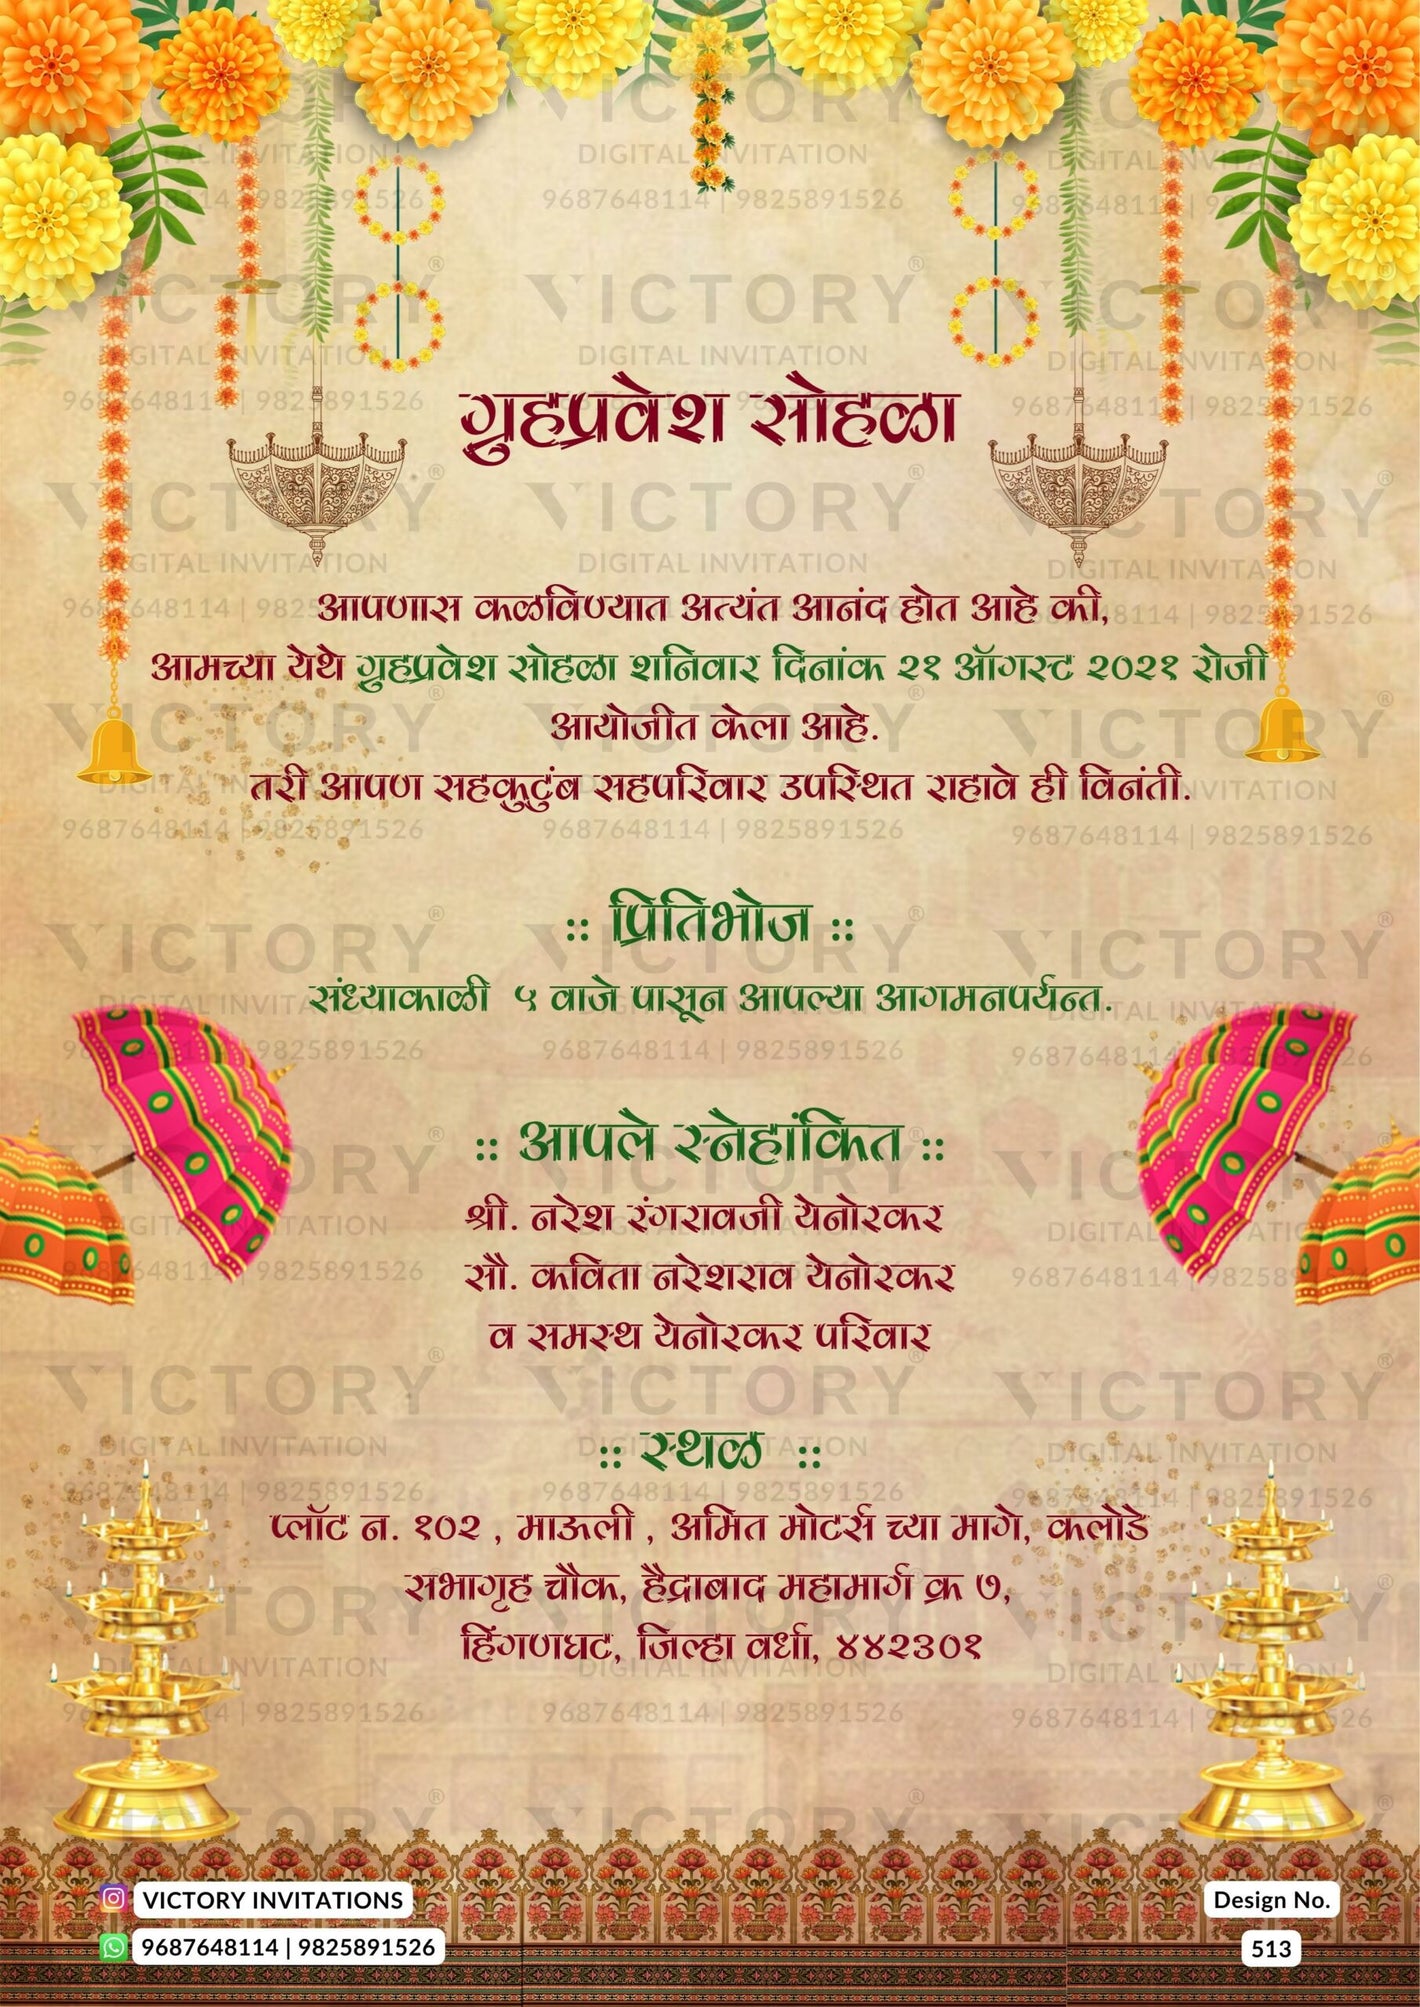 गुहप्रवेश सोहळा
आपणास कळविण्यात अत्यंत आनंद होत आहे की,
आमच्या येथे गुहप्रवेश सोहळा शनिवार दिनांक २१ ऑगस्ट २०२१ रोजी
आयोजीत केला आहे.
तरी आपण सहकुटुंब सहपरिवार उपस्थित राहावे ही विनंती.
:: प्रितिभोज ::
संध्याकाळी ५ वाजे पासून आपल्या आगमनपर्यन्त.
:: आपले स्नेहांकित ::
श्री. नरेश रंगरावजी येनोरकर
सौ. कविता नरेशराव येनोरकर
व समस्थ येनोरकर परिवार
:: स्थळ ::
प्लॉट न. १०२ , माऊली , अमित मोटर्स च्या मागे, कलोडे
सभागृह चौक, हैद्राबाद महामार्ग क्र ७,
हिंगणघट, जिल्हा वर्धा, ४४२३०१
VICTORY INVITATIONS
9687648114 | 9825891526
Design No.
513
VICTORY®
DIGITAL INVITATION
9687648114 | 9825891526